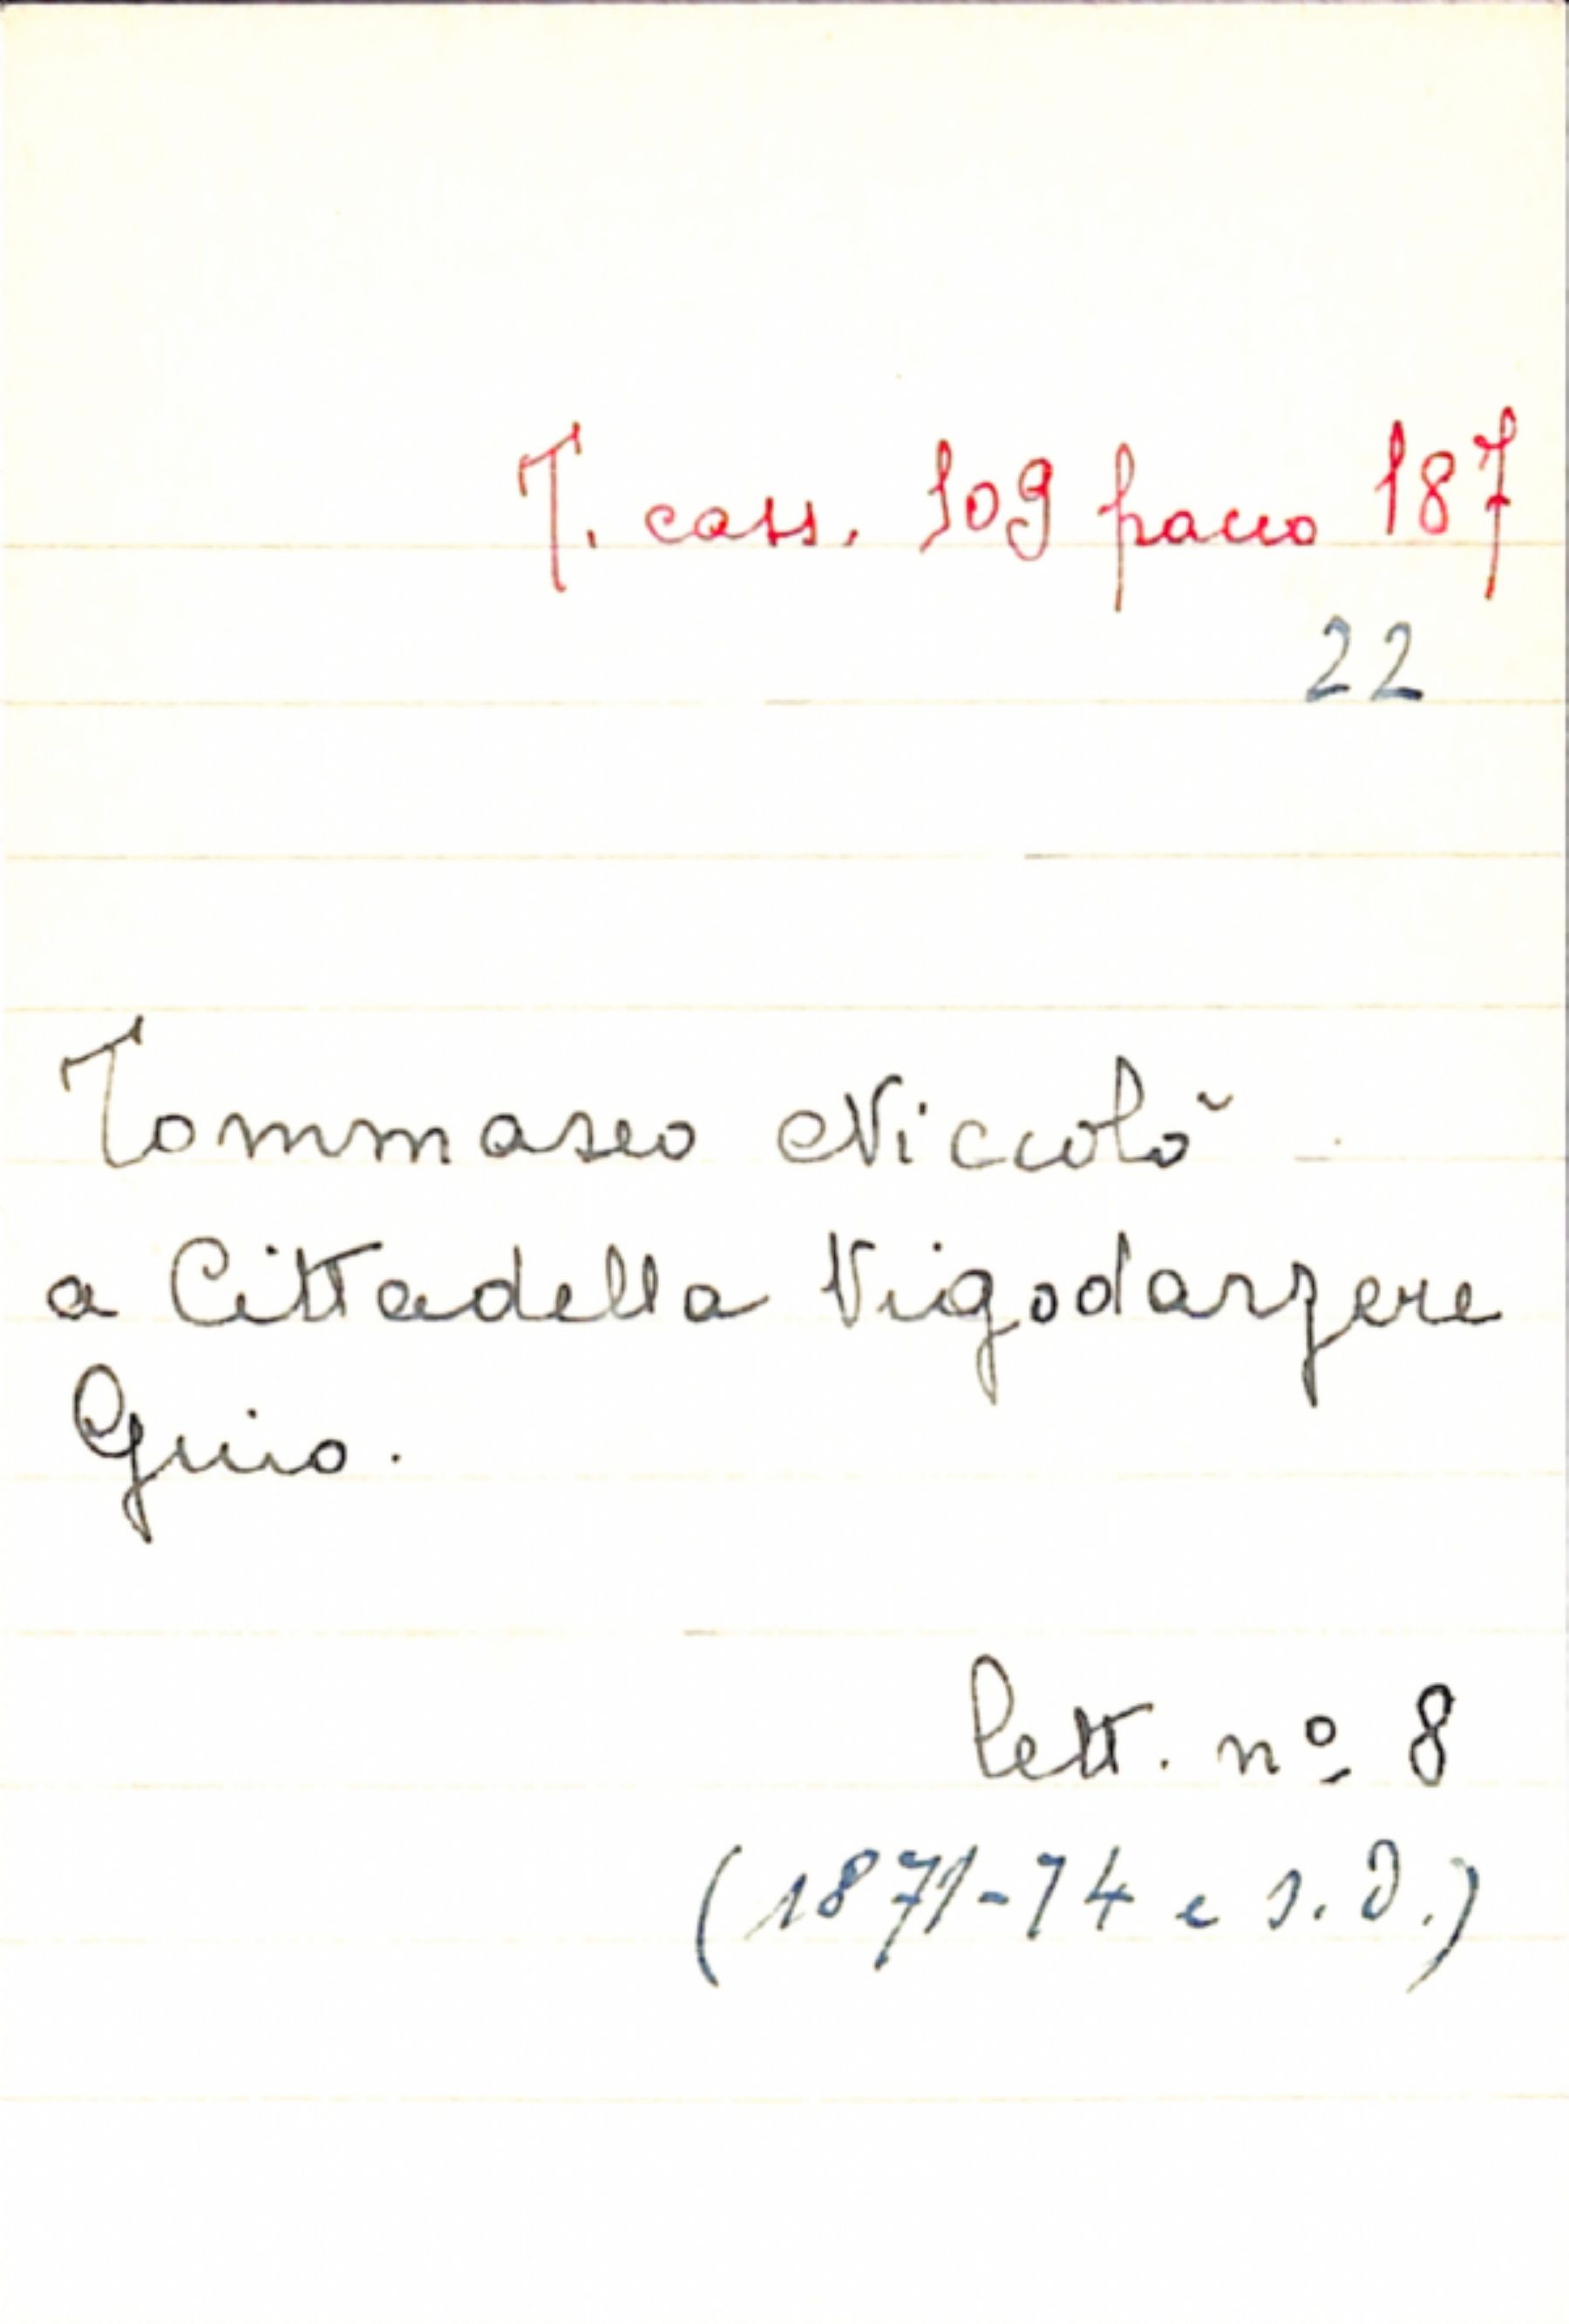 T. cass. 109 pacco 187
22
Tommaseo Niccolò
a Cittadella Vigodarzere
Gino.
lett. nº 8
(1871-74 e s.d.)